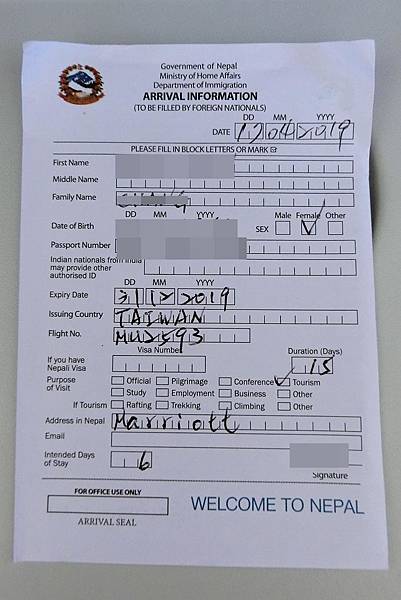 Government of Nepal
Ministry of Home Affairs
Department of Immigration
ARRIVAL INFORMATION
(TO BE FILLED BY FOREIGN NATIONALS)
DD MM YYYY
DATE 12 04 2019
PLEASE FILL IN BLOCK LETTERS OR MARK ☑
First Name
Middle Name
Family Name
DD MM YYYY Male Female Other
Date of Birth SEX ✓
Passport Number
Indian nationals from India
may provide other
authorised ID
DD MM YYYY
Expiry Date 31 12 2019
Issuing Country TAIWAN
Flight No. MU2593
Visa Number Duration (Days)
If you have
Nepali Visa 15
Purpose
of Visit
Official Pilgrimage Conference ✓ Tourism
Study Employment Business Other
If Tourism Rafting Trekking Climbing Other
Address in Nepal Marriott
Email
Intended Days
of Stay 6
Signature
FOR OFFICE USE ONLY
WELCOME TO NEPAL
ARRIVAL SEAL